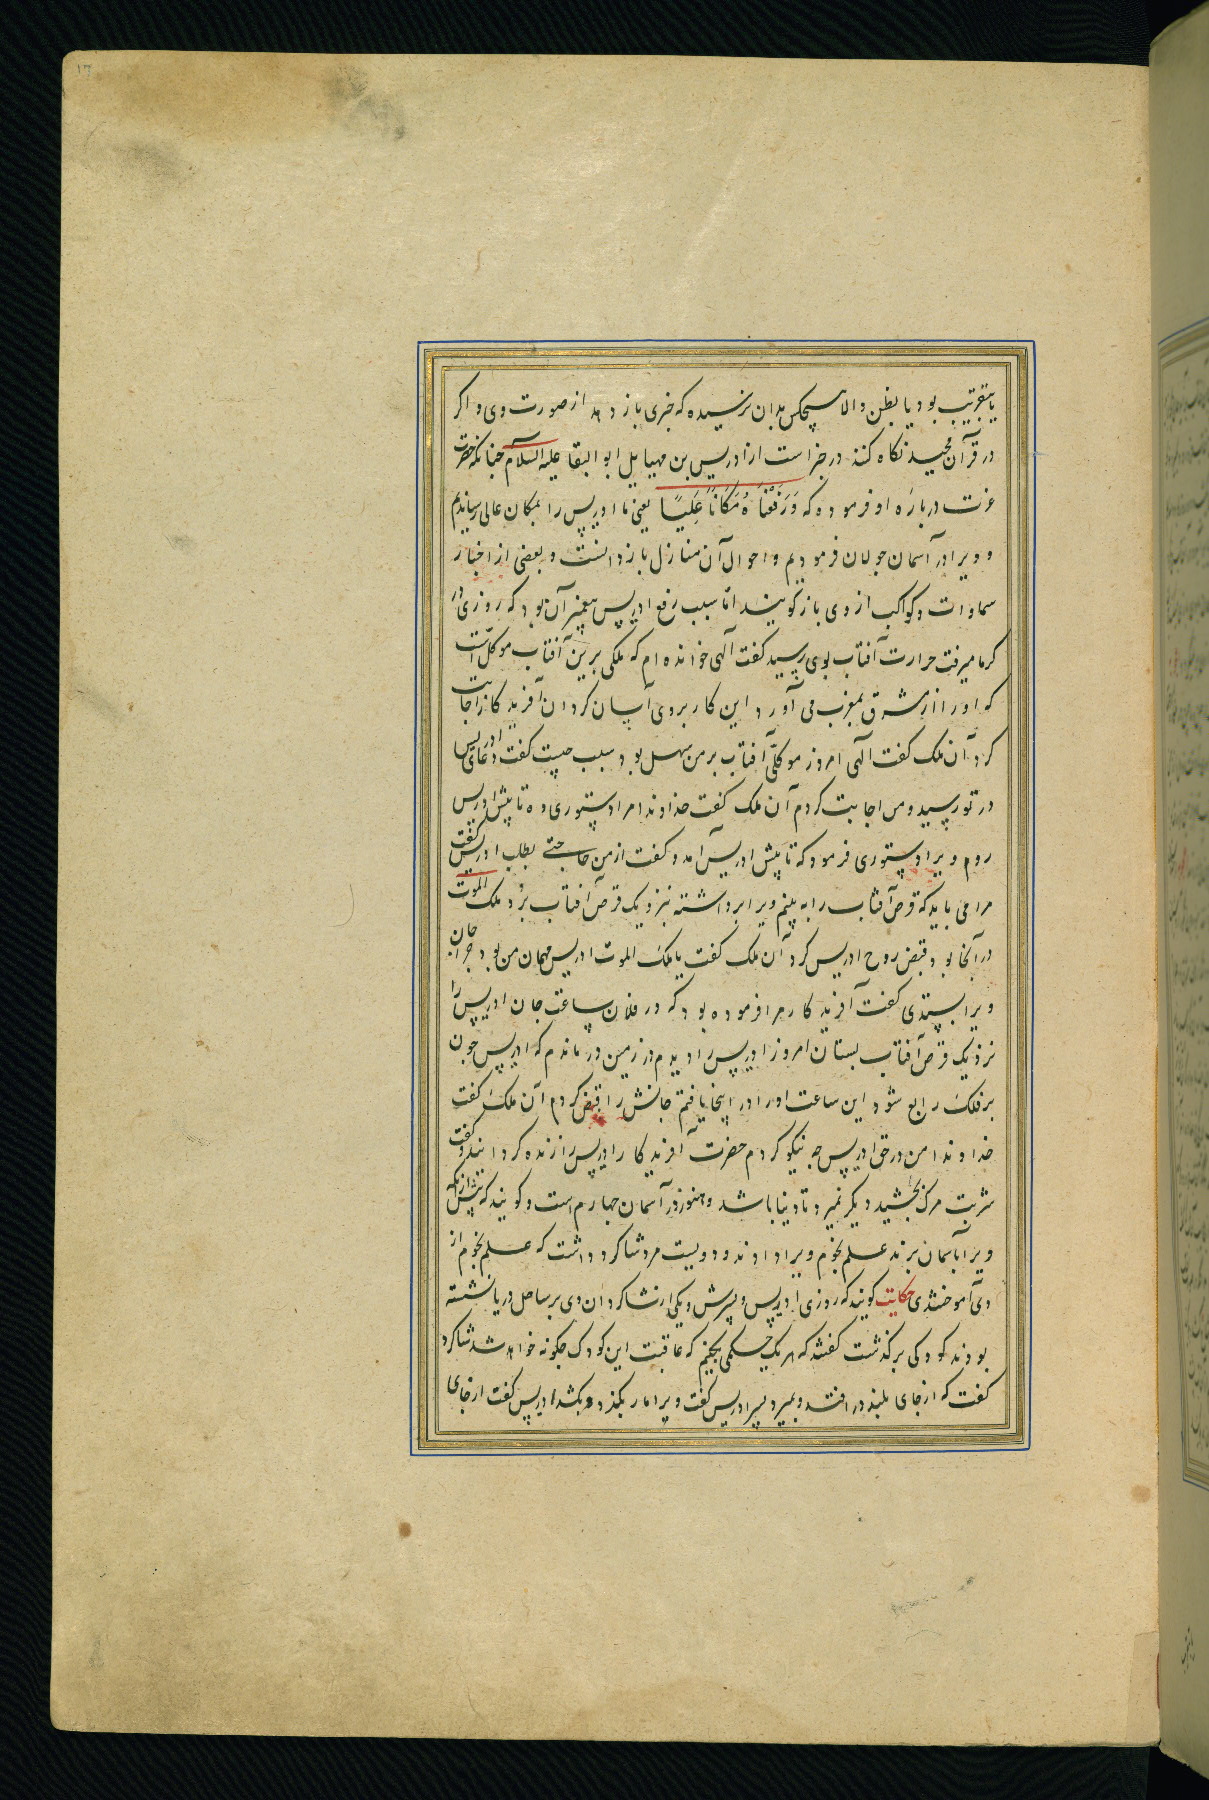 ١٦
یا بتقریب بود یا بظن والا هیچکس بدان نرسیده که خبری باز دهد از صورت وی و اگر
در قرآن مجید نکاه کنند در خبر است از ادریس بن مهیاییل ابو البقا علیه السلام جنانکه حضرت
عزت درباره او فرموده که وَرَفَعْنَاهُ مَکَانًا عَلِیًّا یعنی ما ادریس را بمکان عالی رساندیم
و ویرا در آسمان جولان فرمودیم و احوال آن منازل باز دانست و بعضی از اخبار
سماوات و کواکب از وی باز کویند اما سبب رفع ادریس پیغمبر آن بود که روزی در
کرما میرفت حرارت آفتاب بوی رسید کفت الهی خوانده ام که ملکی برین آفتاب موکل است
که او را از مشرق بمغرب می آورد این کار بر وی آسان کردان آفریدکار اجابت
کرد آن ملک کفت الهی امروز موکلی آفتاب بر من سهل بود سبب چیست کفت دعای ادریس
در تو رسید و من اجابت کردم آن ملک کفت خداوندا مرا دستوری ده تا پیش ادریس
روم ویرا دستوری فرمود که تا پیش ادریس آمد و کفت از من حاجتی بطلب ادریس کفت
مرا می باید که قرص آفتاب را به بینم ویرا برداشته نزدیک قرص آفتاب برد ملک الموت
در آنجا بود قبض روح ادریس کرد آن ملک کفت یا ملک الموت ادریس مهمان من بود چرا جان
ویرا بستدی کفت آفریدکار مرا فرموده بود که در فلان ساعت جان ادریس را
نزدیک قرص آفتاب بستان امروز ادریس را دیدم در زمین در ماندم که ادریس جون
بر فلک رابع شود این ساعت او را در اینجا یافتم جانش را قبض کردم آن ملک کفت
خداوندا من در حق ادریس جه نیکو کردم حضرت آفریدکار ادریس را زنده کردانید و کفت
شربت مرک بچشید دیکر نمیرد تا دنیا باشد و هنوز در آسمان جهارم است و کویند که پیش ازانکه
ویرا بآسمان برند علم نجوم ویرا دادند و دویست مرد شاکرد داشت که علم نجوم از
وی آموختندی حکایت کویند که روزی ادریس و پسرش و یکی از شاکردان وی بر ساحل دریا نشسته
بودند کودکی برکذشت کفتند که هر یک حکمی بکنیم که عاقبت این کودک جکونه خواهد شد شاکرد
کفت که از جای بلند در افتد و بمیرد پسر ادریس کفت ویرا مار بکزد و بکشد ادریس کفت از جای